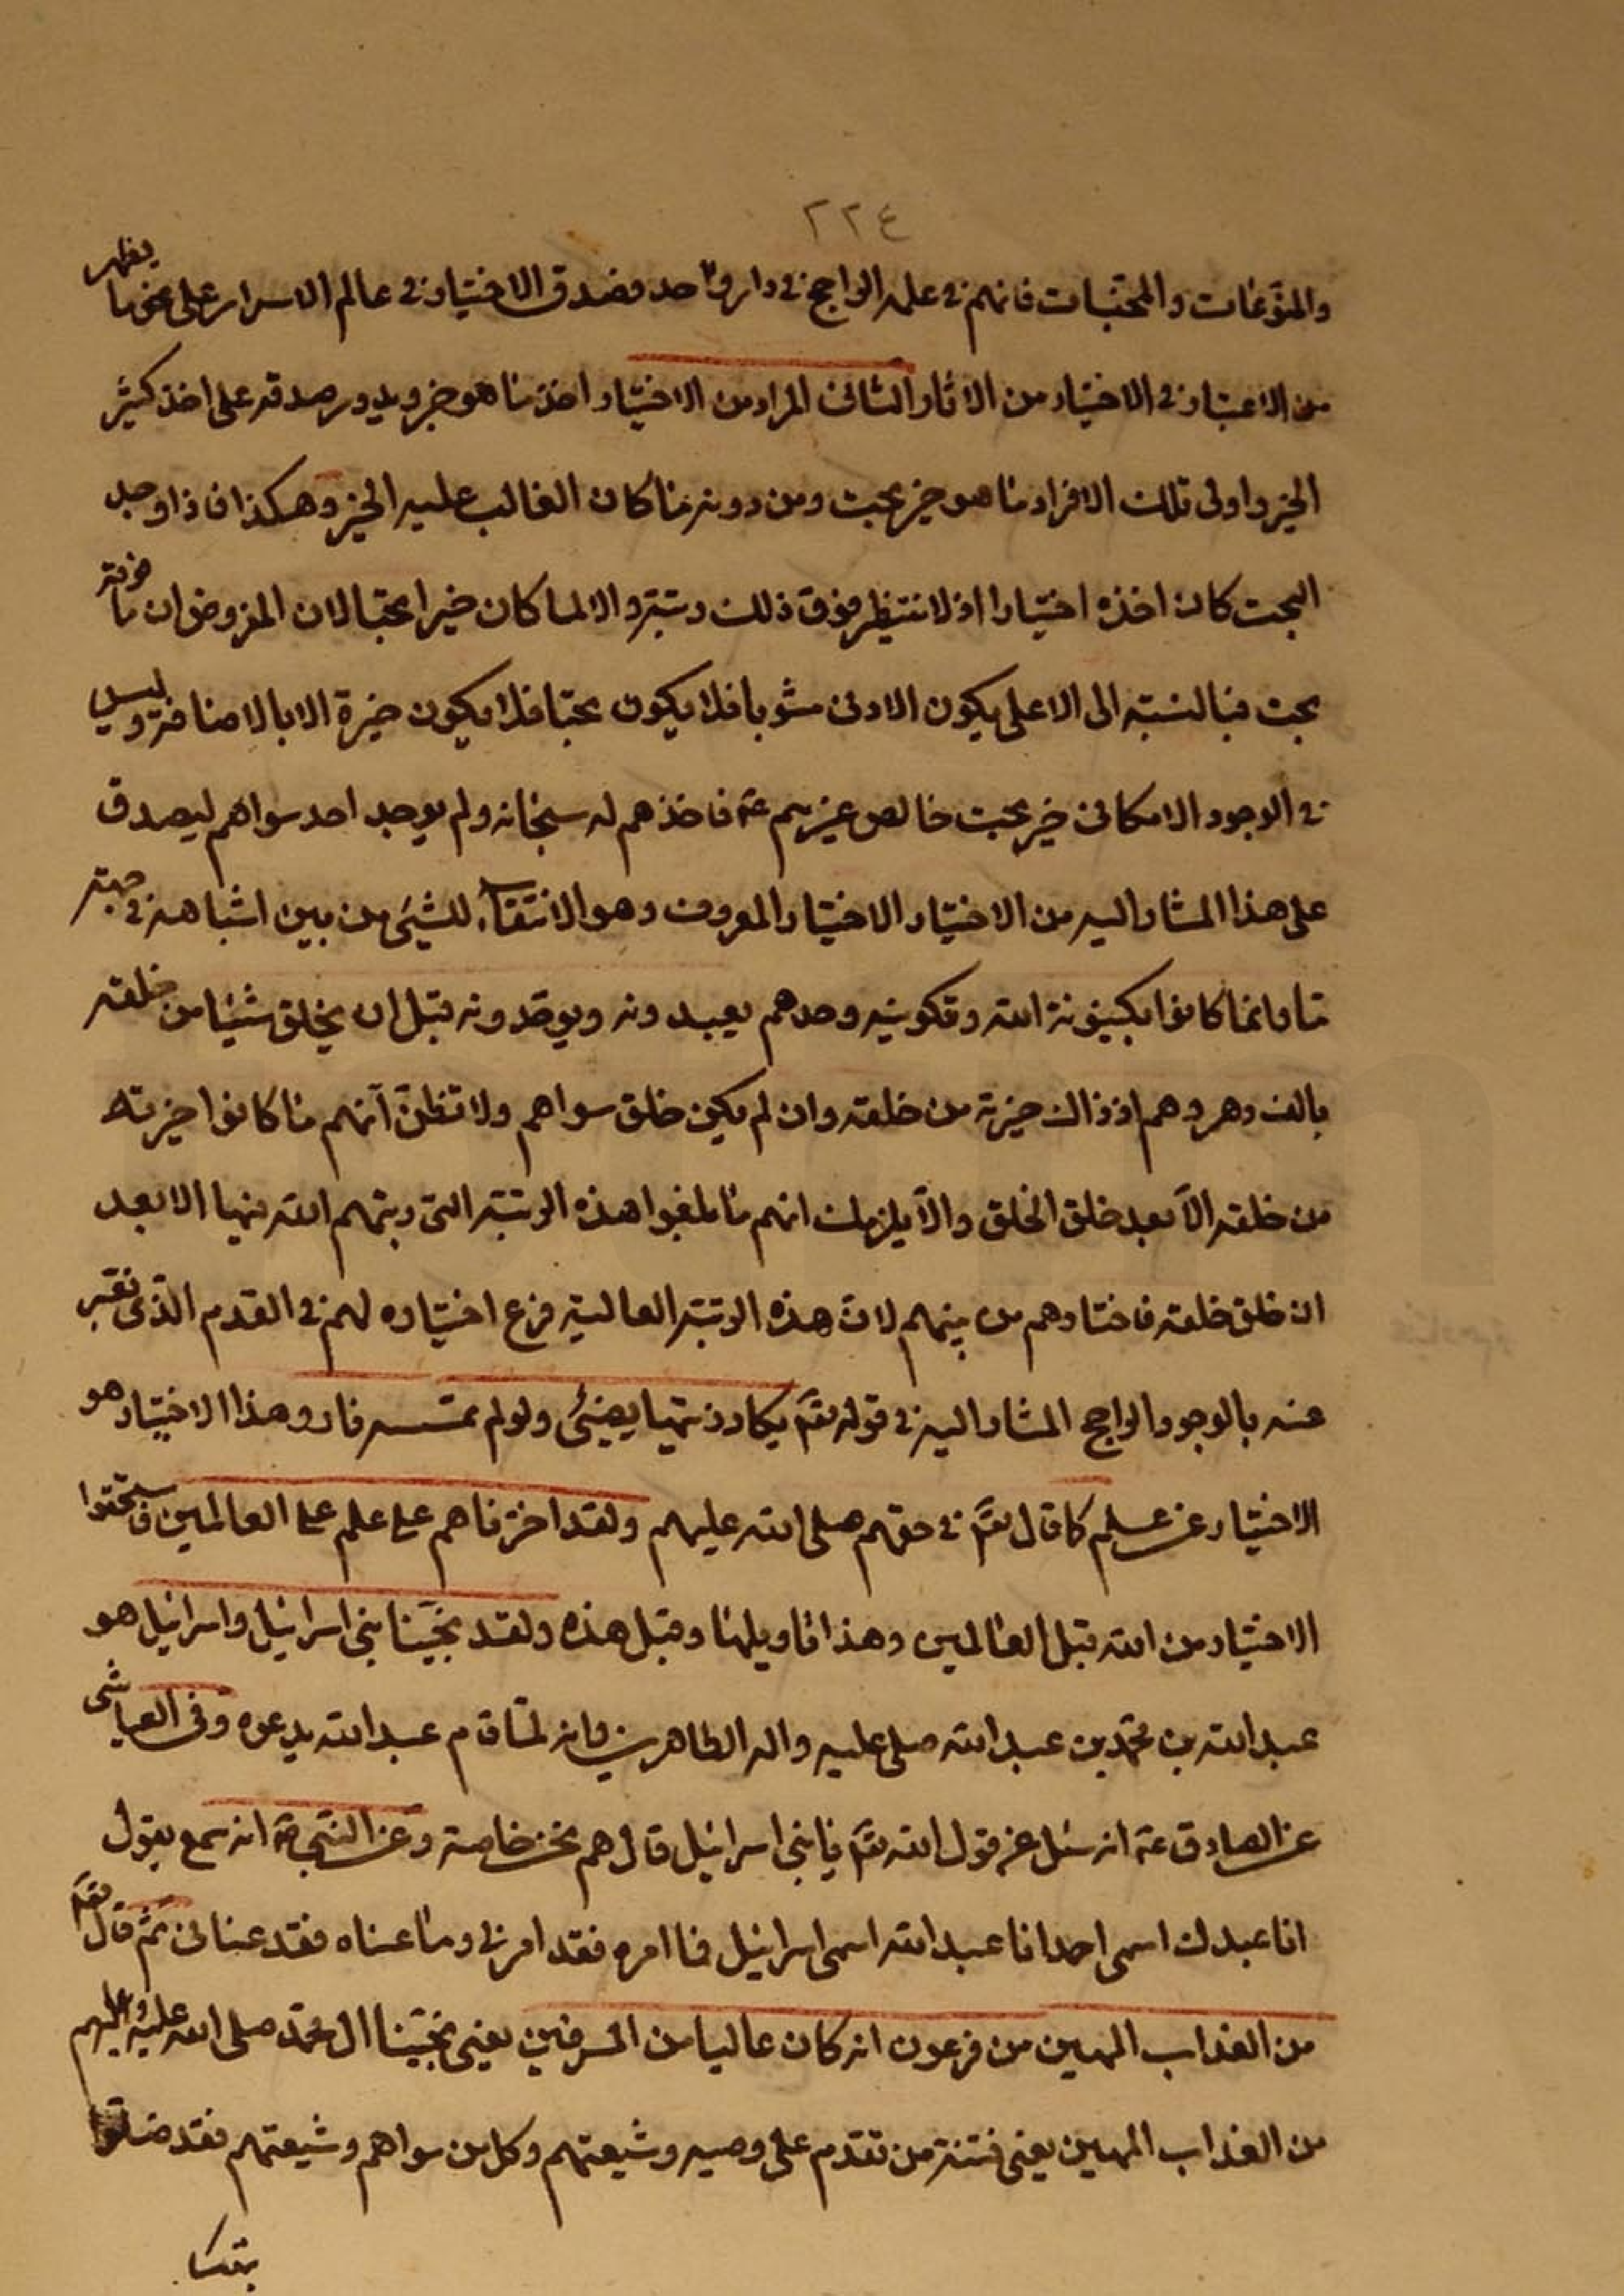 ٢٢٤
والمتوغات والمحتبات فانهم في علمه الراجح في دار واحد فصدق الاختيار في عالم الاسرار على نحو ما يظهر
من الاعتبار في الاختيار من الاثار الثاني المراد من الاختيار اخذ ما هو خير ويدور صدقه على اخذ كثير
الخير واولى تلك الافراد ما هو خير بحت ومن دونه ما كان الغالب عليه الخير وهكذا فاذا وجد
البحت كان اخذه اختيارا اذ لا ننتظر فوق ذلك رتبة والا لما كان خيرا بحتا لان المفروض ان ما فوقه
بحت فبالنسبة الى الاعلى يكون الادنى مشوبا فلا يكون بحتا فلا يكون خيرة الا بالاضافة وليس
في الوجود الامكاني خير بحت خالص غيرهم ع فاخذهم له سبحانه ولم يوجد احد سواهم ليصدق
على هذا المشار اليه من الاختيار الاختيار المعروف وهو الانتقاء للشيء من بين اشباهه في جهته
ما وانما كانوا بكينونة الله وتكوينه وحدهم يعبدونه ويوحدونه قبل ان يخلق شيئا من خلقه
بالف دهر وهم اذ ذاك خيرته من خلقه وان لم يكن خلق سواهم ولا تظن انهم ما كانوا خيرته
من خلقه الا بعد خلق الخلق والا يلزمك انهم ما بلغوا هذه الرتبة التي رتبهم الله فيها الا بعد
ان خلق خلقه فاختارهم من بينهم لان هذه الرتبة العالية فرع اختياره لهم في القدم الذي نعبر
عنه بالوجود الراجح المشار اليه في قوله تعالى يكاد زيتها يضيئ ولو لم تمسسه نار وهذا الاختيار هو
الاختيار عن علم كما قال تعالى في حقهم صلى الله عليهم ولقد اخترناهم على علم على العالمين فاستحقوا
الاختيار من الله قبل العالمين وهذا تاويلها وقبل هذه ولقد نجينا بني اسرائيل واسرائيل هو
عبد الله بن محمد بن عبد الله صلى عليه واله الطاهرين وانه لما قام عبد الله يدعوه وفي العياشي
عن الصادق ع انه سئل عن قول الله تعالى يا بني اسرائيل قال هم نحن خاصة وعن النبي ص انه سمع يقول
انا عبدك اسمي احد انا عبد الله اسمي اسرائيل فما امره فقد امرني وما عناه فقد عناني ثم قال تعالى
من العذاب المهين من فرعون انه كان عاليا من المسرفين يعني نجينا ال محمد صلى الله عليه وعليهم
من العذاب المهين يعني فتنة من تقدم على وصيه وشيعتهم وكل من سواهم وشيعتهم فقد ضلوا